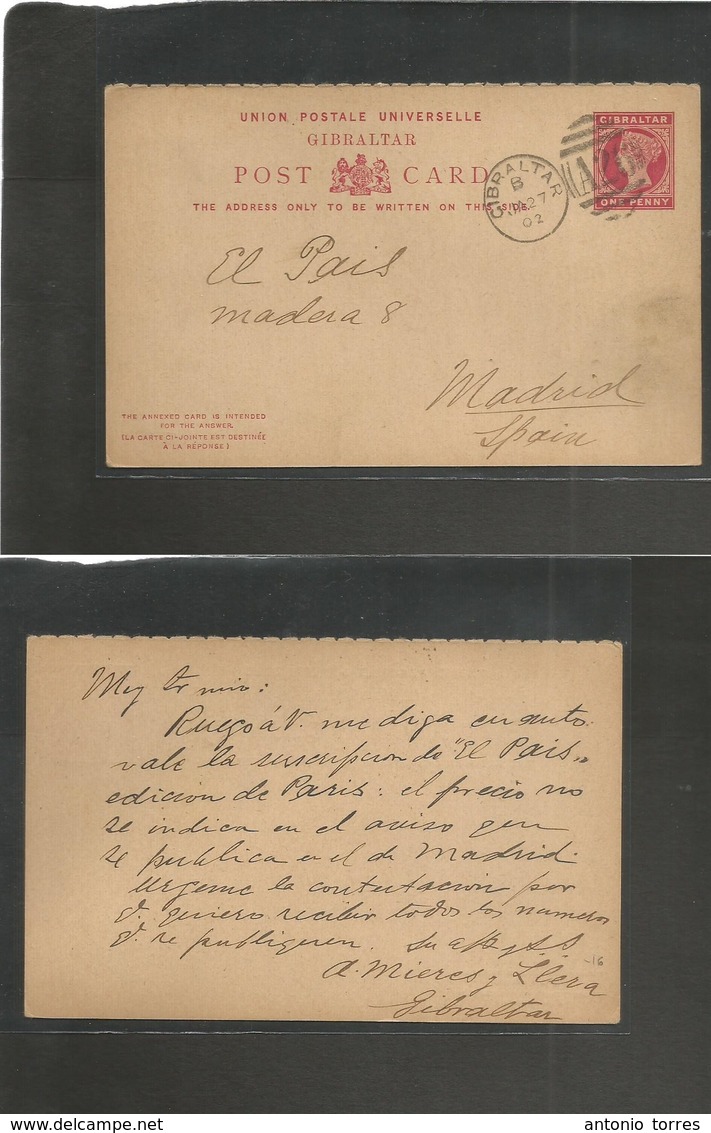 UNION POSTALE UNIVERSELLE
GIBRALTAR
POST CARD
THE ADDRESS ONLY TO BE WRITTEN ON THIS SIDE.
GIBRALTAR
ONE PENNY
GIBRALTAR
B
JA 27
02
A26
El Pais
madera 8
Madrid
Spain
THE ANNEXED CARD IS INTENDED
FOR THE ANSWER.
(LA CARTE CI-JOINTE EST DESTINÉE
À LA RÉPONSE)
Muy Sr mio:
Ruego á V. me diga cuanto
vale la suscripcion de "El Pais"
edicion de Paris: el precio no
se indica en el aviso que
se publica en el de Madrid.
Urgeme la contestacion por
q. quiero recibir todos los numeros
q. se publiquen. Su
A. Mieres y Llera
Gibraltar
-16
antonio torres